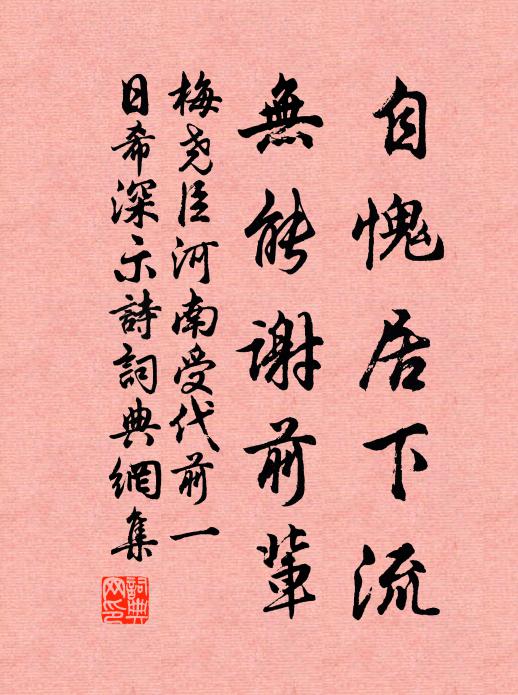 自愧居下流
無能謝前輩
梅堯臣河南受代前一
日希深示詩詞典網集
詞典
网印